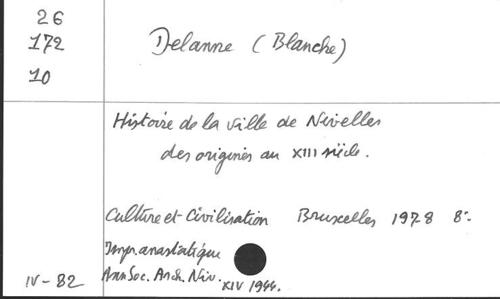 26
172
10
Delanne (Blanche)
Histoire de la ville de Nivelles
des origines au XIII siècle.
Culture et Civilisation Bruxelles 1978 8°
Impr. anastatique
Ann Soc. Arch. Niv. XIV 1944.
IV-82